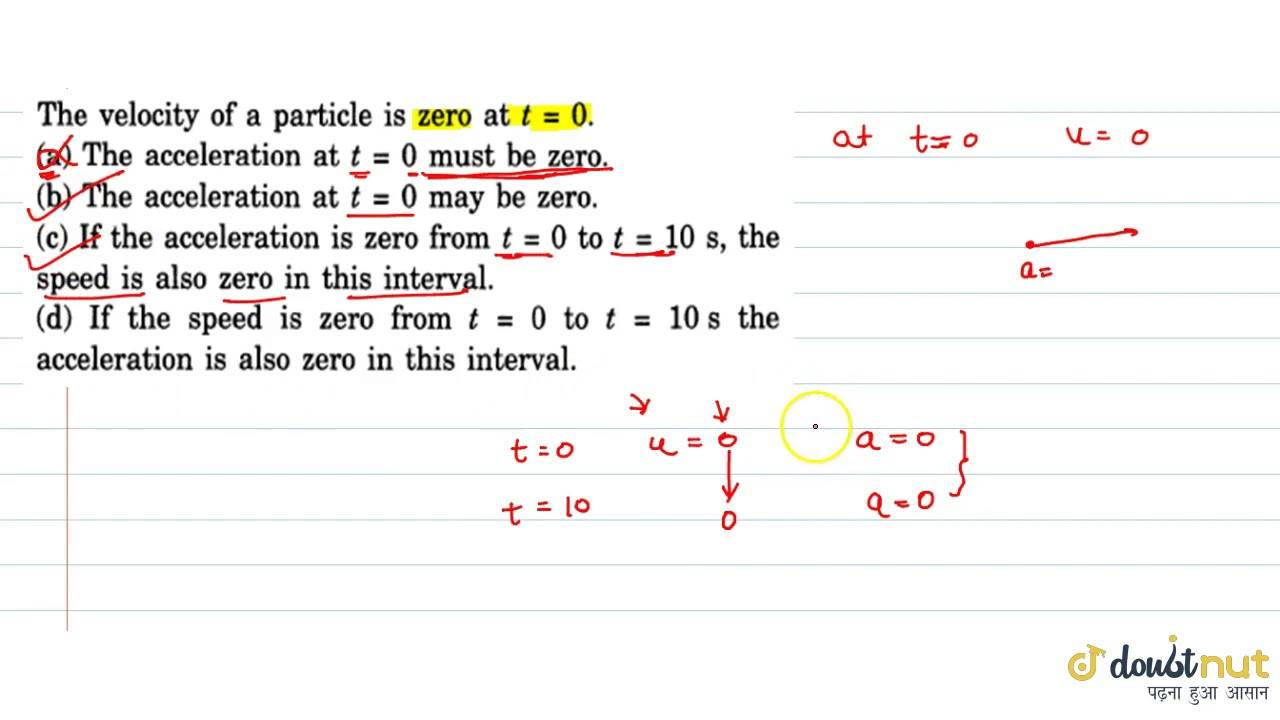 The velocity of a particle is zero at t = 0.
(a) The acceleration at t = 0 must be zero.
(b) The acceleration at t = 0 may be zero.
(c) If the acceleration is zero from t = 0 to t = 10 s, the
speed is also zero in this interval.
(d) If the speed is zero from t = 0 to t = 10 s the
acceleration is also zero in this interval.
at t=0 u= 0
a=
t=0 u = 0 a=0
t = 10 0 a=0
doubtnut
पढ़ना हुआ आसान